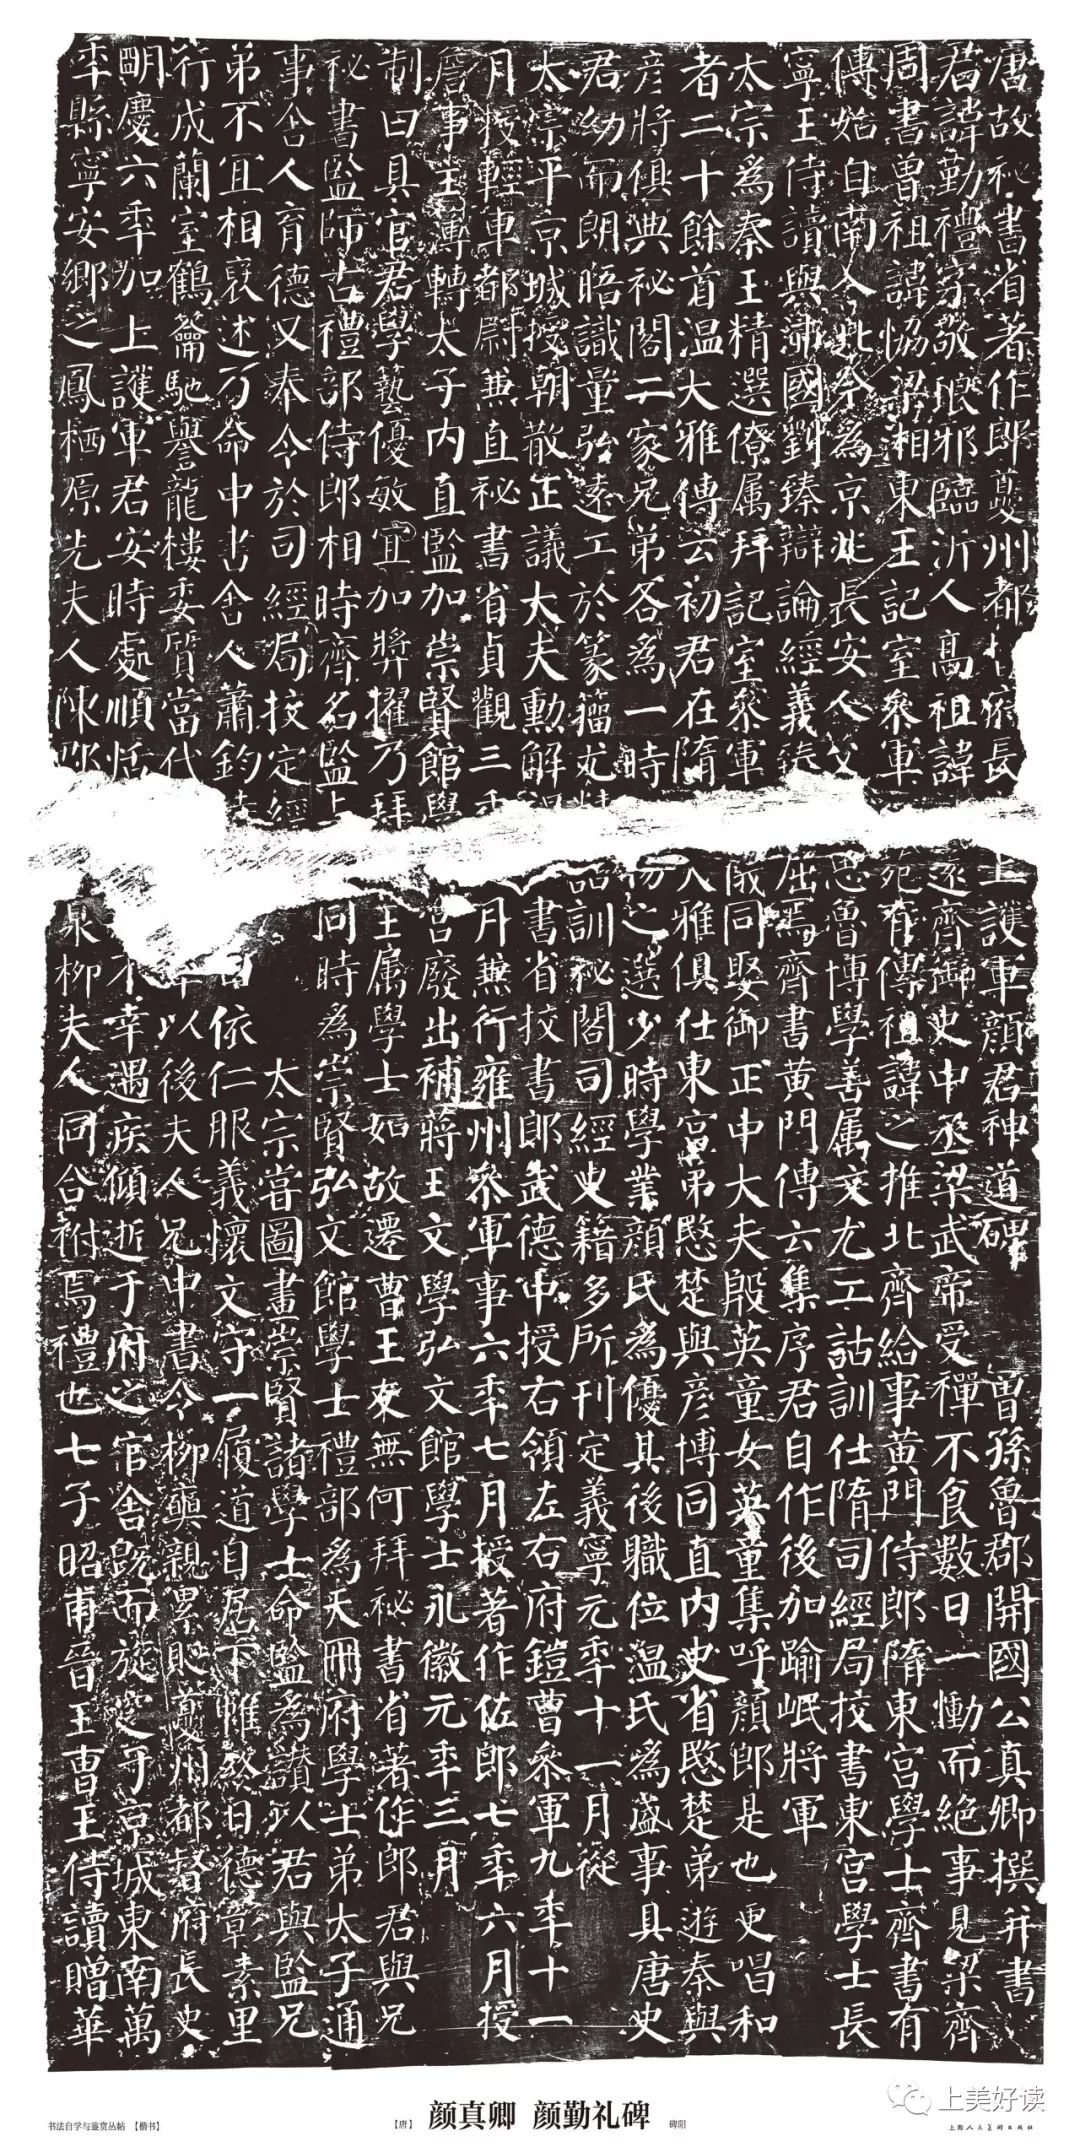 唐故祕書省著作郎夔州都督府長上護軍顏君神道碑 曾孫魯郡開國公真卿撰并書
君諱勤禮字敬琅邪臨沂人高祖諱逺齊御史中丞梁武帝受禪不食數日一慟而絕事見梁齊
周書曾祖諱協梁湘東王記室參軍苑有傳祖諱之推北齊給事黃門侍郎隋東宮學士齊書有
傳始自南入北今為京兆長安人父思魯博學善屬文尤工詁訓仕隋司經局校書東宮學士長
寧王侍讀與沛國劉臻辯論經義臻屈焉齊書黃門傳云集序君自作後加踰岷將軍
太宗為秦王精選僚屬拜記室參軍儀同娶御正中大夫殷英童女英童集呼顏郎是也更唱和
者二十餘首溫大雅傳云初君在隋大雅俱仕東宮弟愍楚與彥博同直內史省愍楚弟遊秦與
彥將俱典祕閣二家兄弟各為一時物之選少時學業顏氏為優其後職位溫氏為盛事具唐史
君幼而朗晤識量弘遠工於篆籀尤精詁訓祕閣司經史籍多所刊定義寧元年十一月從
太宗平京城授朝散正議大夫勳解褐書省校書郎武德中授右領左右府鎧曹參軍九年十一
月授輕車都尉兼直祕書省貞觀三年月兼行雍州參軍事六年七月授著作佐郎七年六月授
詹事主簿轉太子內直監加崇賢館學宮廢出補蔣王文學弘文館學士永徽元年三月
制曰具官君學藝優敏宜加獎擢乃拜王屬學士如故遷曹王友無何拜祕書省著作郎君與兄
祕書監師古禮部侍郎相時齊名監與同時為崇賢弘文館學士禮部為天冊府學士弟太子通
事舍人育德又奉令於司經局校定經 太宗嘗圖畫崇賢諸學士命監為讚以君與監兄
弟不宜相褒述乃命中書舍人蕭鈞特曰依仁服義懷文守一履道自居下帷終日德彰素里
行成蘭室鶴籥馳譽龍樓委質當代年以後夫人兄中書令柳奭親累貶夔州都督府長史
明慶六年加上護軍君安時處順恬不幸遇疾傾逝于府之官舍既而旋窆于京城東南萬
年縣寧安鄉之鳳栖原先夫人陳郡泉柳夫人同合祔焉禮也七子昭甫晉王曹王侍讀贈華
书法自学与鉴赏丛帖 【楷书】 【唐】 颜真卿 颜勤礼碑 碑阳
上美好读
上海人民美術出版社